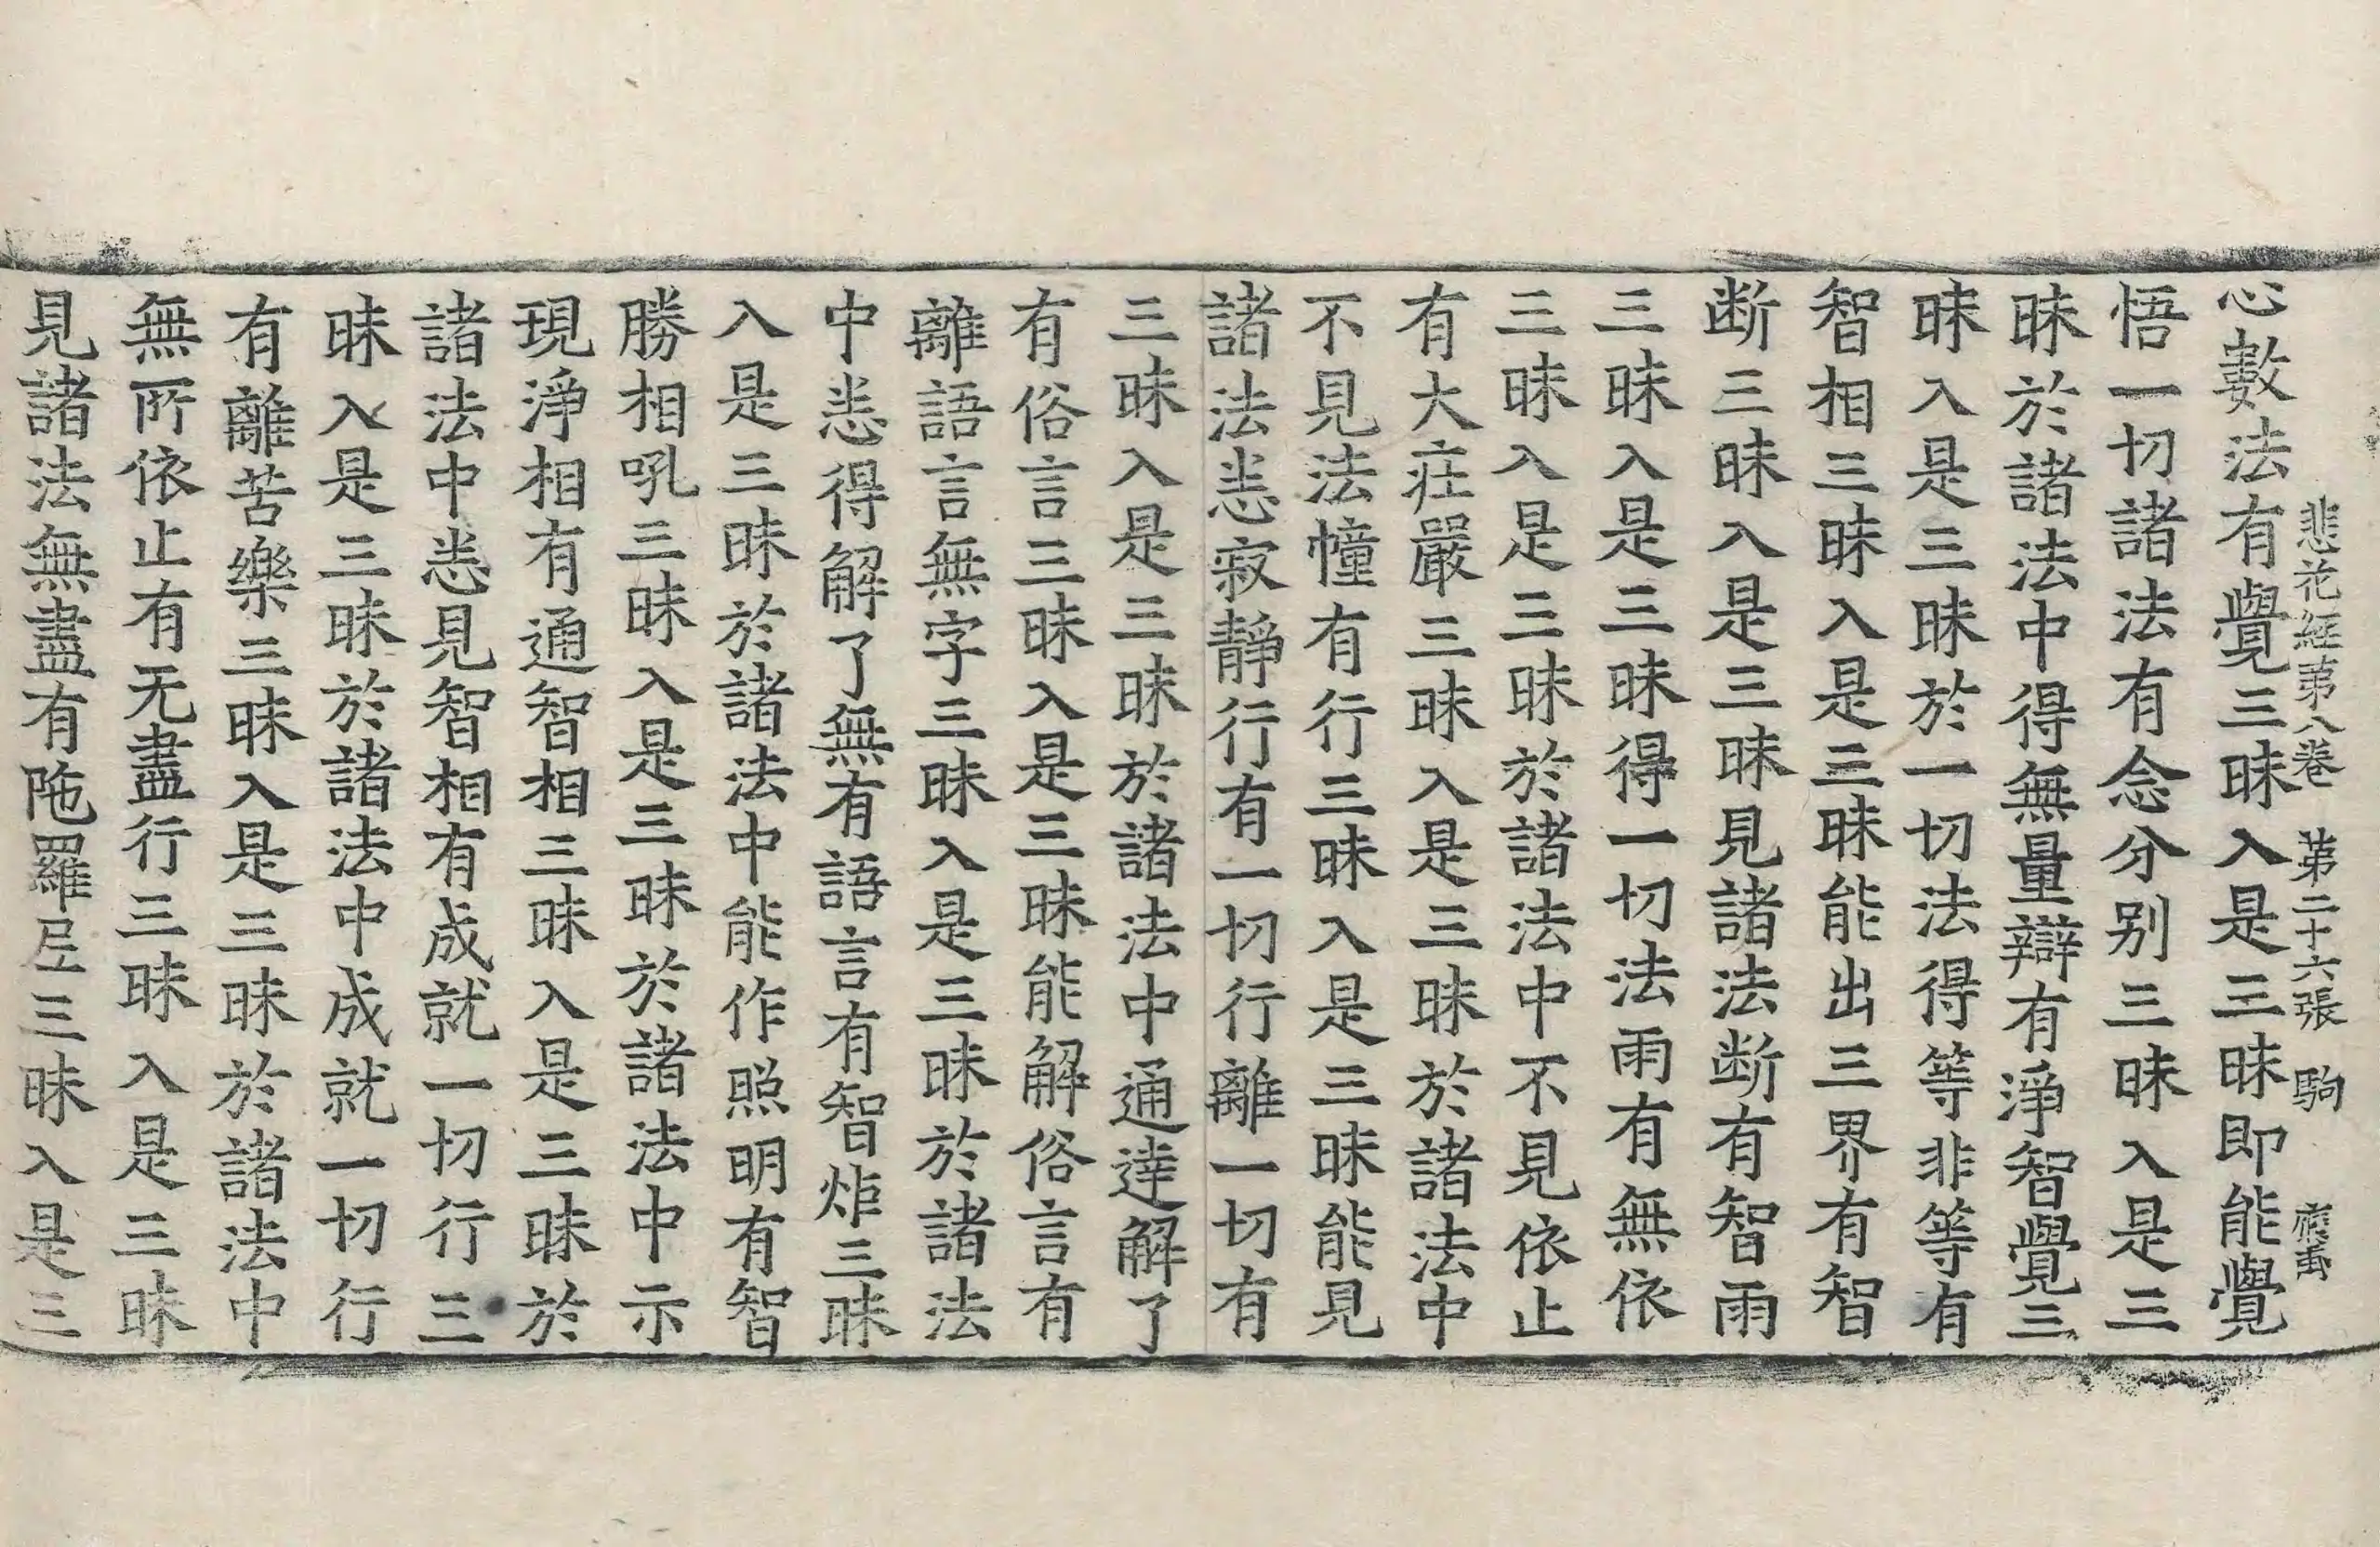 悲花経苐八巻　苐二十六張　駒
心數法有覺三昧入是三昧即能覺
悟一切諸法有念分别三昧入是三
昧於諸法中得無量辯有淨智覺三
昧入是三昧於一切法得等非等有
智相三昧入是三昧能出三界有智
断三昧入是三昧見諸法断有智雨
三昧入是三昧得一切法雨有無依
三昧入是三昧於諸法中不見依止
有大莊嚴三昧入是三昧於諸法中
不見法幢有行三昧入是三昧能見
諸法悉寂靜行有一切行離一切有
三昧入是三昧於諸法中通達解了
有俗言三昧入是三昧能解俗言有
離語言無字三昧入是三昧於諸法
中悉得解了無有語言有智炬三昧
入是三昧於諸法中能作照明有智
勝相吼三昧入是三昧於諸法中示
現淨相有通智相三昧入是三昧於
諸法中悉見智相有成就一切行三
昧入是三昧於諸法中成就一切行
有離苦樂三昧入是三昧於諸法中
無所依止有无盡行三昧入是三昧
見諸法無盡有陁羅尼三昧入是三